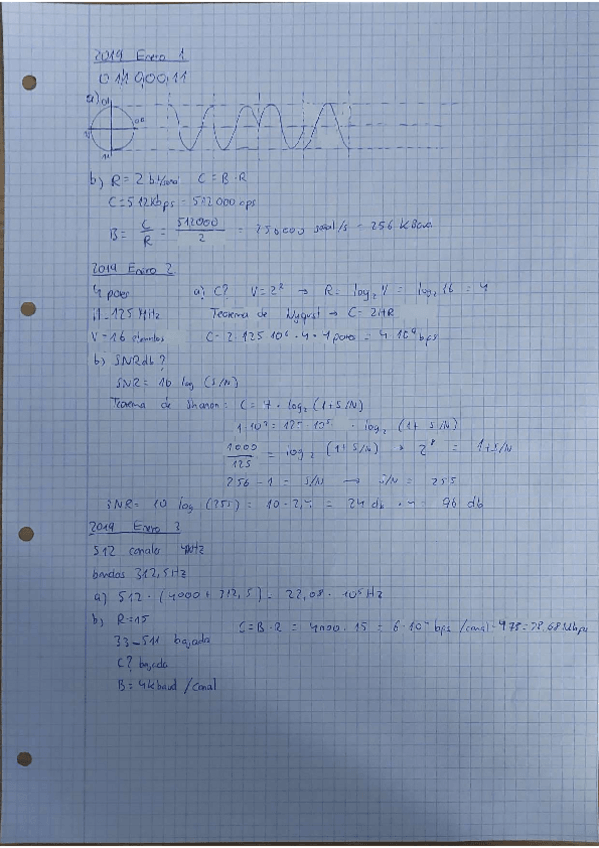 2019 Enero 1
01,10,00,11
a)
b) R = 2 bit/señal C = B · R
C = 512 kbps = 512000 bps
B = C/R = 512000/2 = 256000 señal/s = 256 kBaud
2019 Enero 2
4 pares a) C? V = 2^R → R = log2 V = log2 16 = 4
H = 125 MHz Teorema de Nyquist → C = 2HR
V = 16 elementos C = 2 · 125 · 10^6 · 4 · 4 pares = 4 · 10^9 bps
b) SNRdb?
SNR = 10 log (S/N)
Teorema de Shanon: C = H · log2 (1+S/N)
1 · 10^9 = 125 · 10^6 · log2 (1+S/N)
1000/125 = log2 (1+S/N) → 2^8 = 1+S/N
256 - 1 = S/N → S/N = 255
SNR = 10 log (255) = 10 · 2,4 = 24 db · 4 = 96 db
2019 Enero 3
512 canales 4kHz
bandas 312,5Hz
a) 512 · (4000 + 312,5) = 22,08 · 10^5 Hz
b) R = 15 C = B · R = 4000 · 15 = 6 · 10^4 bps /canal · 478 = 28,68 Mbps
33-511 bajada
C? bajada
B = 4k baud /canal